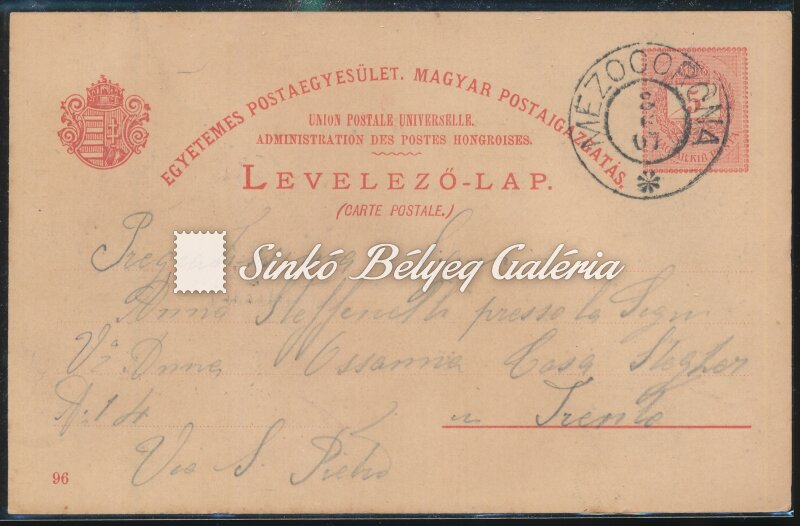 EGYETEMES POSTAEGYESÜLET. MAGYAR POSTAIGAZGATÁS.
UNION POSTALE UNIVERSELLE.
ADMINISTRATION DES POSTES HONGROISES.
LEVELEZŐ-LAP.
(CARTE POSTALE.)
MEZOCOORGNA
Sinkó Bélyeg Galéria
Anna Steffenelli presso la Sign
Va Anna Ossanna Casa Stegher
No 14 in Trento
Via S. Pietro
96